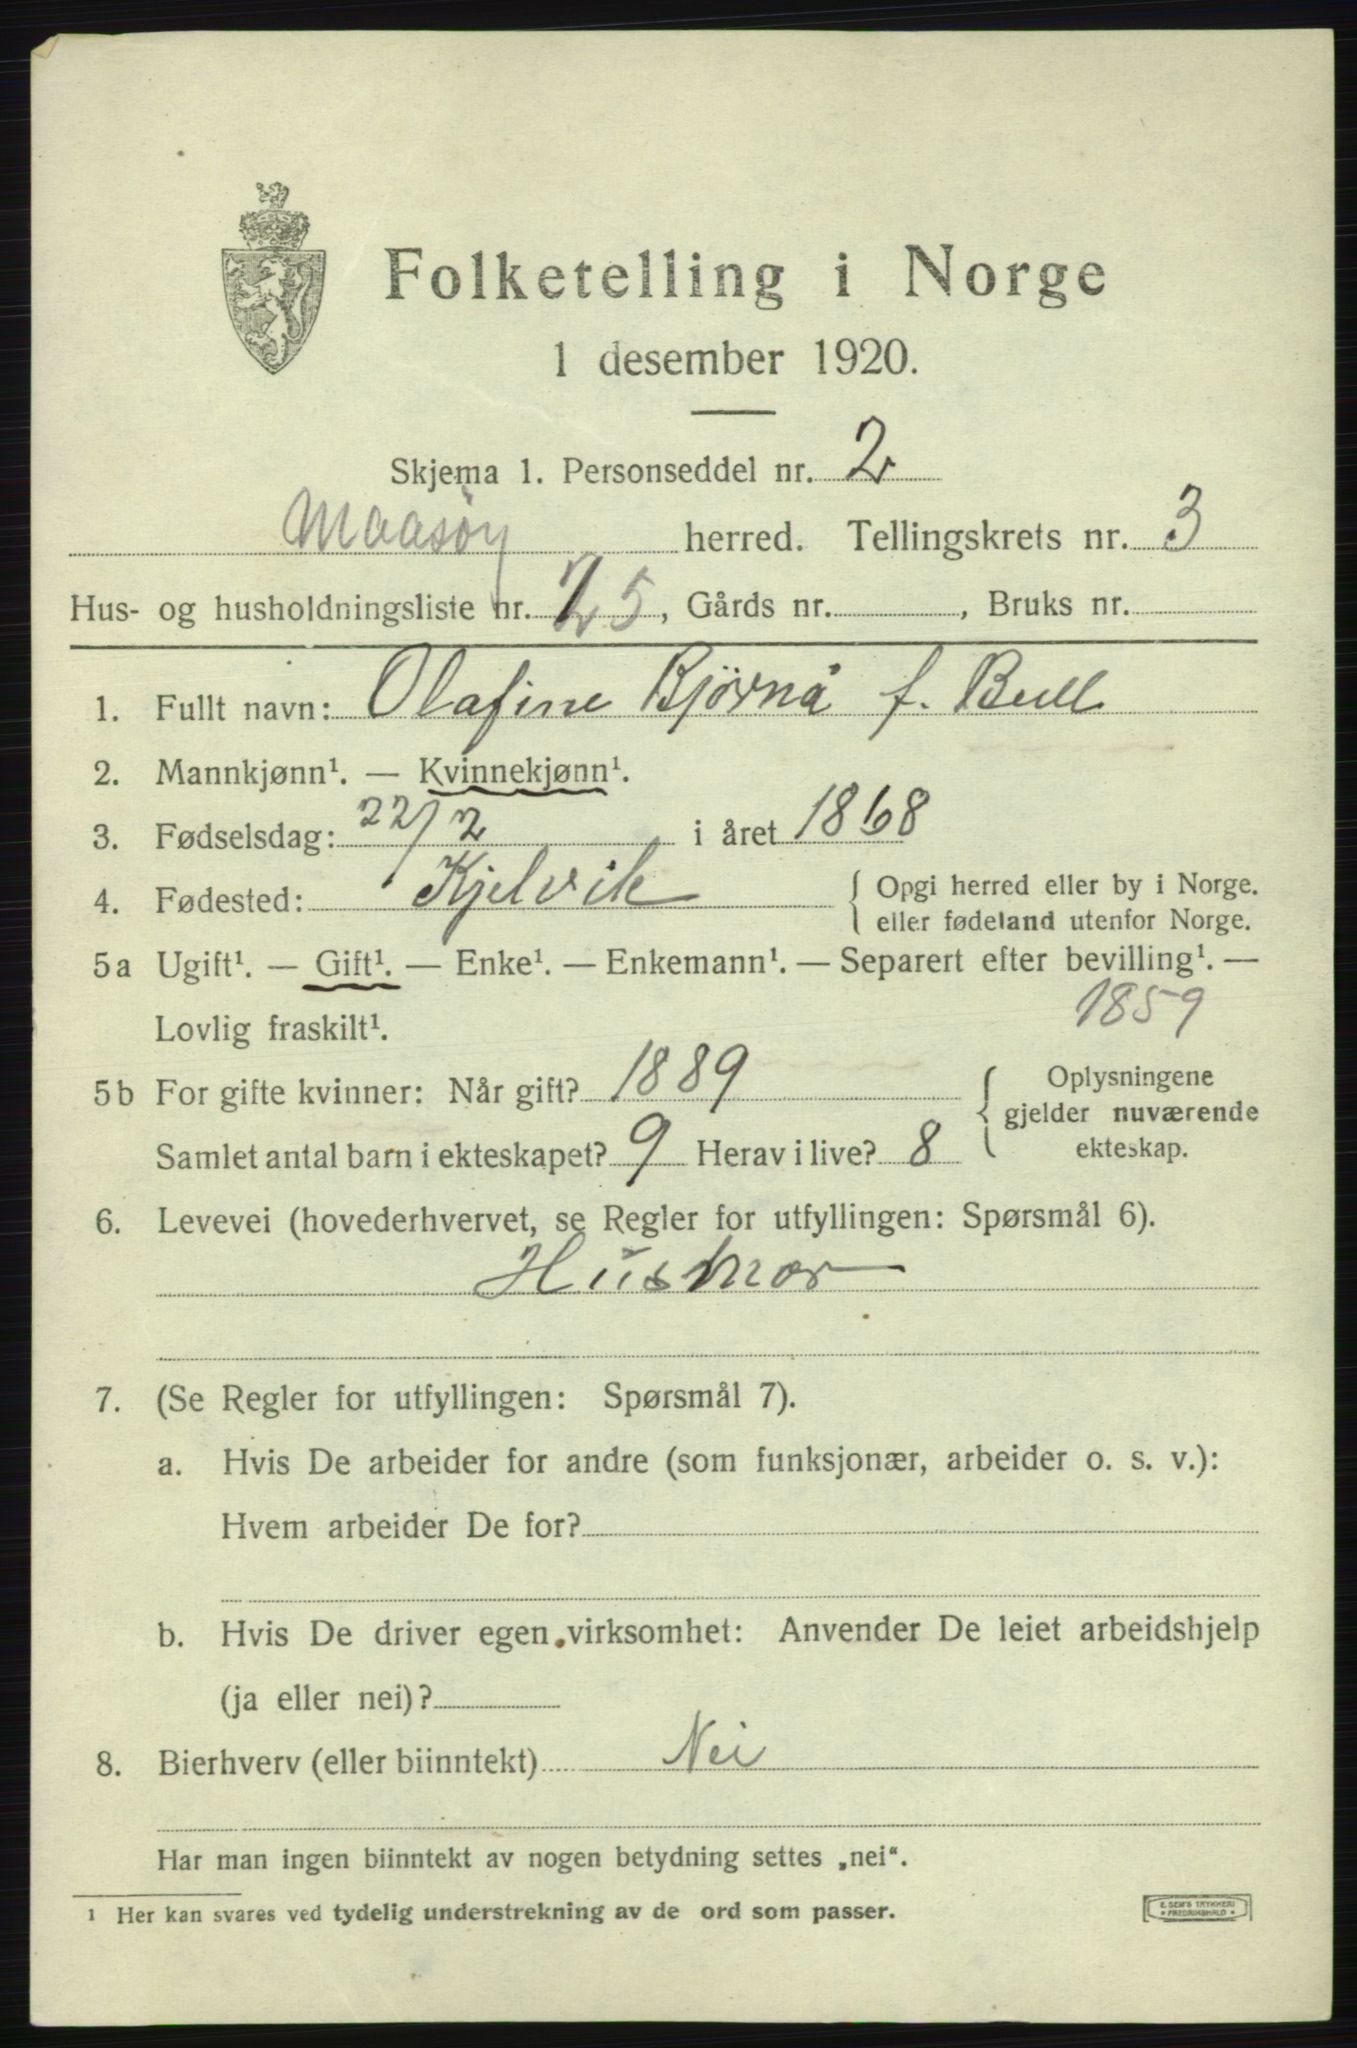 Folketelling i Norge
1 desember 1920.
Skjema 1. Personseddel nr. 2
Maasöy herred. Tellingskrets nr. 3
Hus- og husholdningsliste nr. 25, Gårds nr. , Bruks nr.
1. Fullt navn: Olafine Bjørnå f. Bull
2. Mannkjønn¹. — Kvinnekjønn¹.
3. Fødselsdag: 22/2 i året 1868
4. Fødested: Kjelvik { Opgi herred eller by i Norge.
eller fødeland utenfor Norge.
5a Ugift¹. — Gift¹. — Enke¹. — Enkemann¹. — Separert efter bevilling¹. —
Lovlig fraskilt¹. 1859
5b For gifte kvinner: Når gift? 1889 { Oplysningene
gjelder nuværende
Samlet antal barn i ekteskapet? 9 Herav i live? 8 ekteskap.
6. Levevei (hovederhvervet, se Regler for utfyllingen: Spørsmål 6).
Husmor
7. (Se Regler for utfyllingen: Spørsmål 7).
a. Hvis De arbeider for andre (som funksjonær, arbeider o. s. v.):
Hvem arbeider De for?
b. Hvis De driver egen virksomhet: Anvender De leiet arbeidshjelp
(ja eller nei)?
8. Bierhverv (eller biinntekt) Nei
Har man ingen biinntekt av nogen betydning settes „nei“.
¹ Her kan svares ved tydelig understrekning av de ord som passer.
E SEM'S TRYKKERI
FREDRIKSHALD